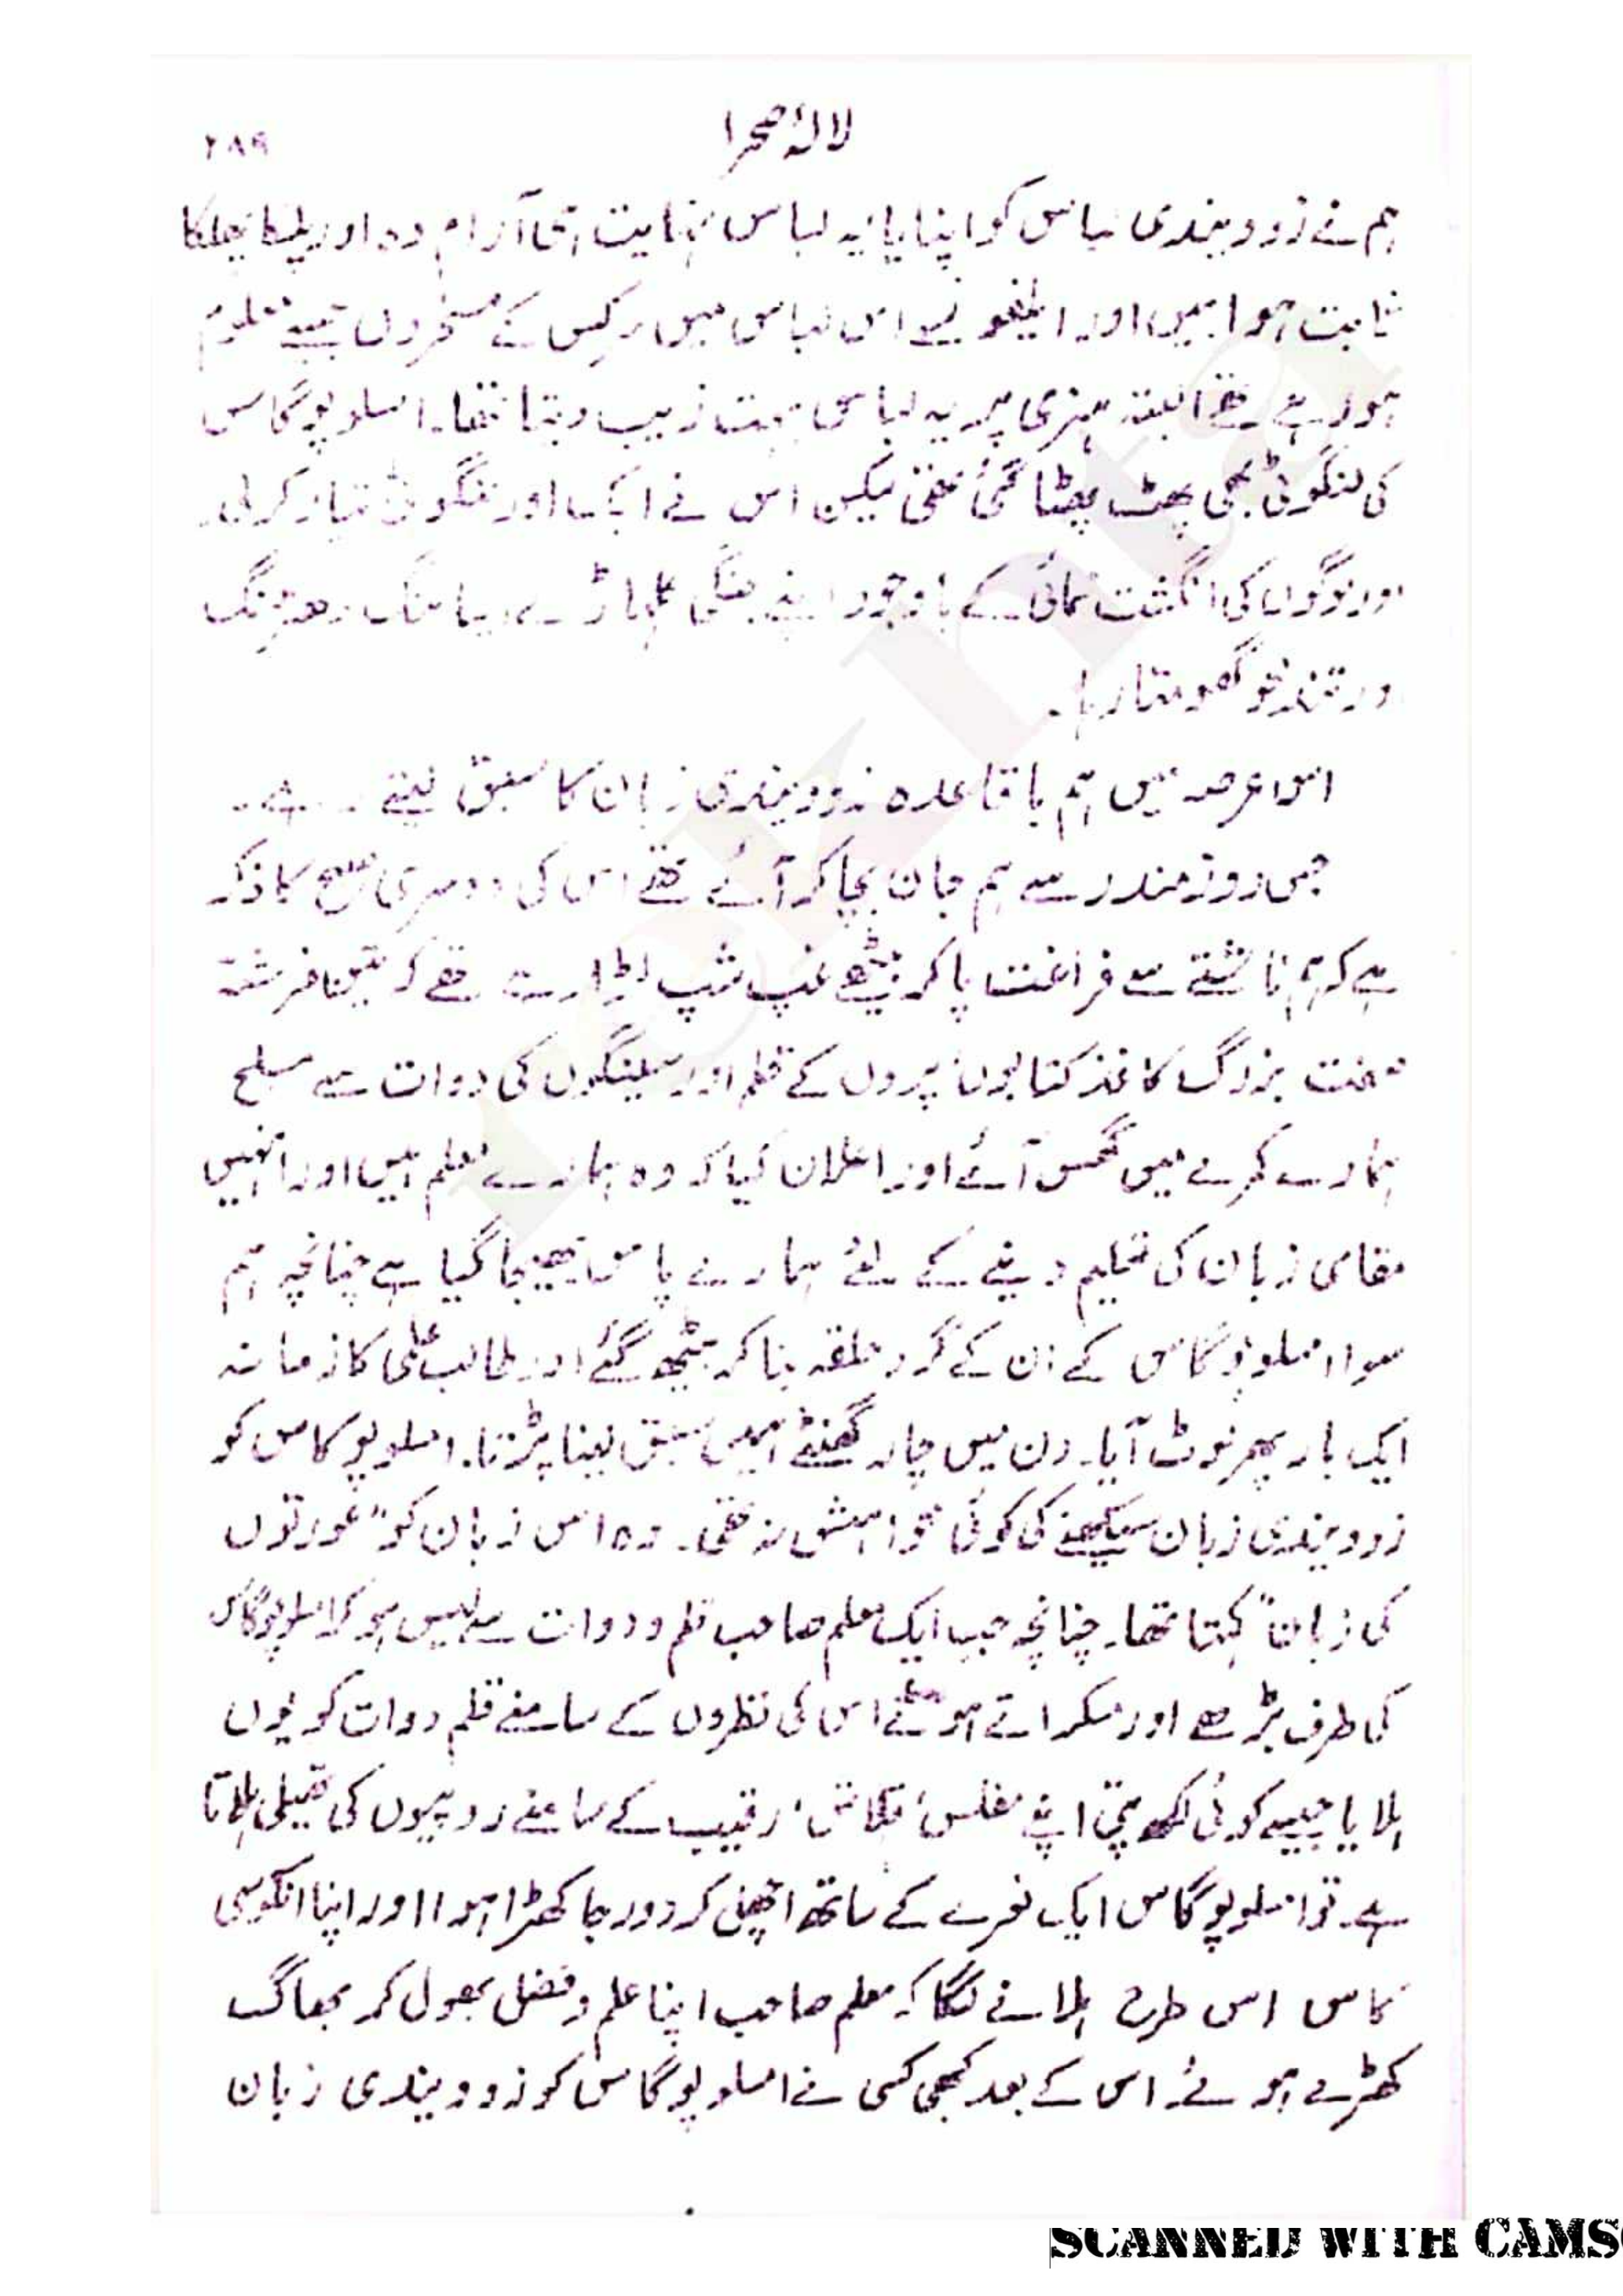 لالۂ صحرا
۲۸۹
ہم نے زوویندی لباس کو اپنا لیا یہ لباس نہایت ہی آرام دہ اور ہلکا پھلکا
ثابت ہوا میں اور الفونسے اس لباس میں سرکس کے مسخروں جیسے معلوم
ہو رہے تھے البتہ ہنری پر یہ لباس بہت زیب دیتا تھا۔ امسلوپوگاس
کی لنگوٹی بھی پھٹ پھٹا گئی تھی لیکن اس نے ایک اور لنگوٹی تیار کر لی۔
اور لوگوں کی انگشت نمائی کے باوجود اپنے جنگی کلہاڑے
اور تندخو گھومتا رہا۔
اس عرصہ میں ہم باقاعدہ زوویندی زبان کا سبق لیتے رہے۔
جس روز مندر سے ہم جان بچا کر آئے تھے اس کی دوسری صبح کا ذکر
ہے کہ ہم ناشتے سے فراغت پا کر بیٹھے غپ شپ لڑا رہے تھے کہ تین فرشتہ
صفت بزرگ کاغذ کتابوں پروں کے قلم اور سینگوں کی دوات سے مسلح
ہمارے کمرے میں گھس آئے اور اعلان کیا کہ وہ ہمارے معلم ہیں اور انہیں
مقامی زبان کی تعلیم دینے کے لئے ہمارے پاس بھیجا گیا ہے چنانچہ ہم
سوا امسلوپوگاس کے ان کے گرد حلقہ بنا کر بیٹھ گئے اور طالب علمی کا زمانہ
ایک بار پھر لوٹ آیا۔ دن میں چار گھنٹے ہمیں سبق لینا پڑتا۔ امسلوپوگاس کو
زوویندی زبان سیکھنے کی کوئی خواہش نہ تھی۔ وہ اس زبان کو "عورتوں
کی زبان" کہتا تھا۔ چنانچہ جب ایک معلم صاحب قلم و دوات سے لیس ہو کر امسلوپوگاس
کی طرف بڑھے اور مسکراتے ہوئے اس کی نظروں کے سامنے قلم دوات کو یوں
ہلایا جیسے کوئی لکھ پتی اپنے مفلس، قلاش، رقیب کے سامنے روپیوں کی تھیلی ہلاتا
ہے۔ تو امسلوپوگاس ایک نعرے کے ساتھ اچھل کر دور جا کھڑا ہوا اور اپنا انکوسی
کاس اس طرح ہلانے لگا کہ معلم صاحب اپنا علم و فضل بھول کر بھاگ
کھڑے ہوئے۔ اس کے بعد کبھی کسی نے امسلوپوگاس کو زوویندی زبان
SCANNED WITH CAMS